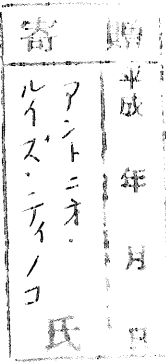 寄贈
平成 年 月 日
アントニオ・
ルイズ・ティノコ
氏